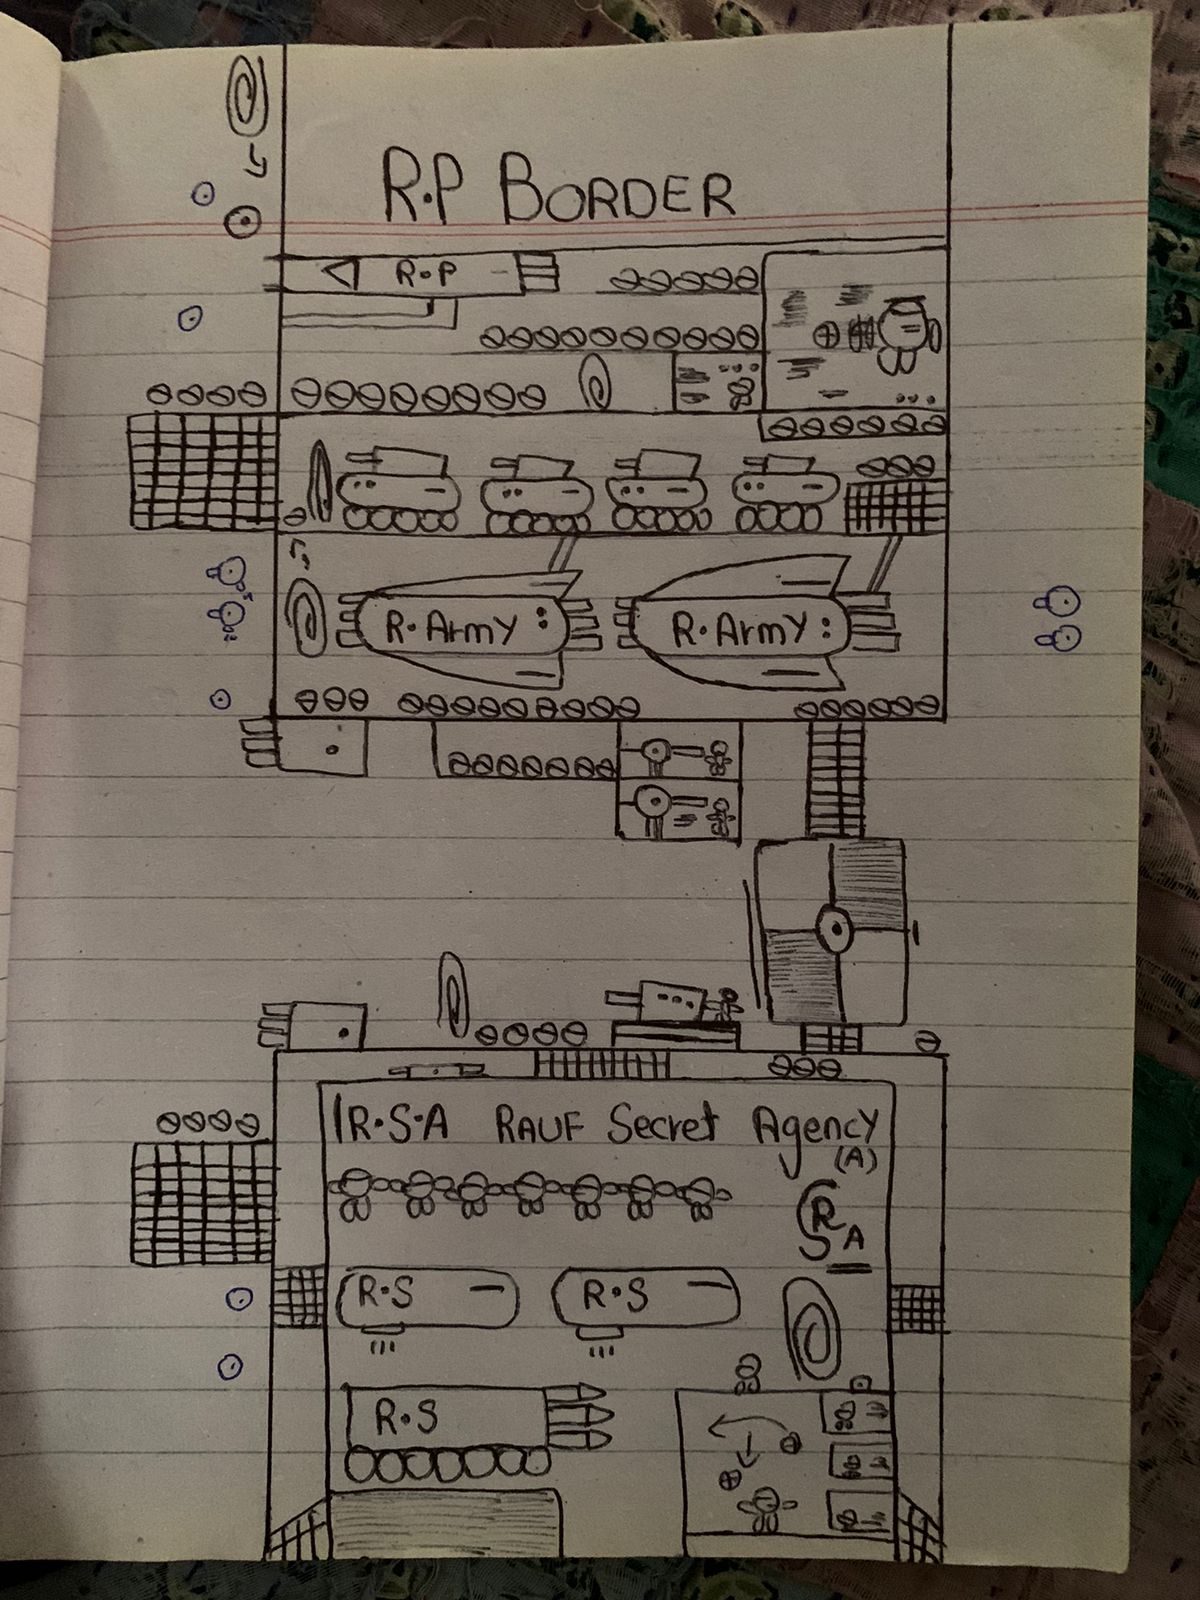 R.P BORDER
R.P
R.Army
R.Army
R.S.A RAUF Secret Agency
(A)
RSA
R.S
R.S
R.S